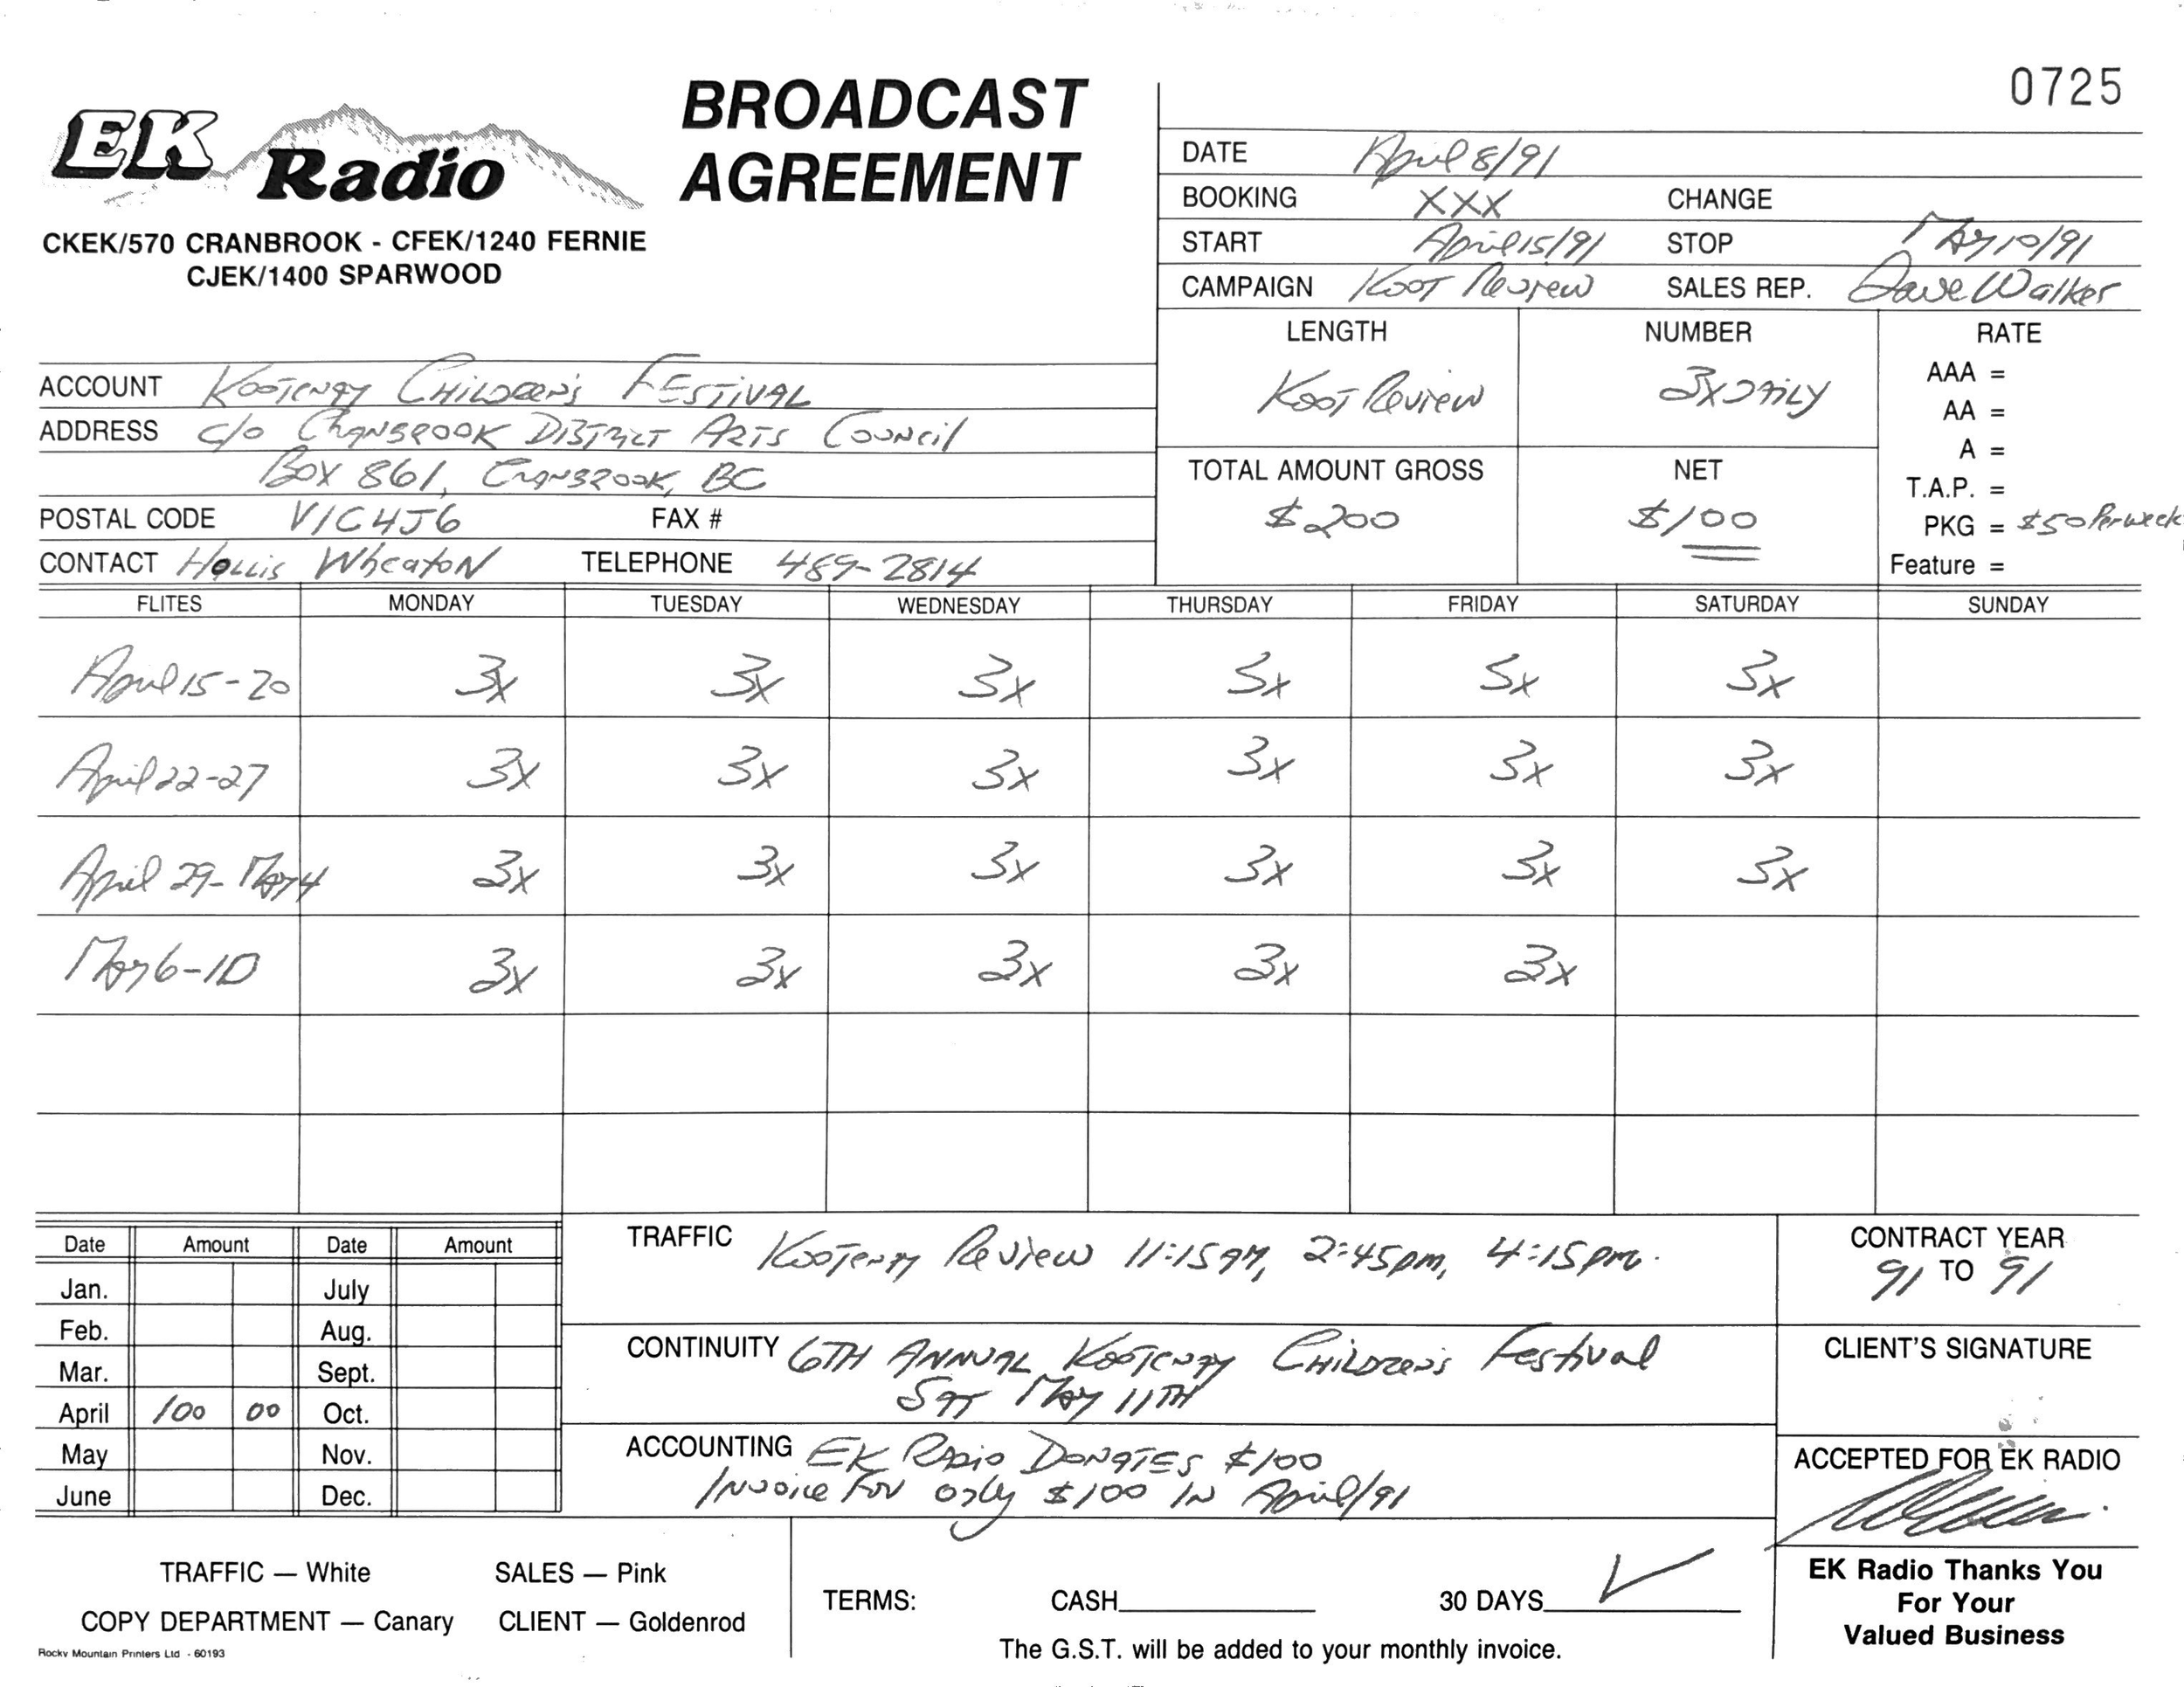 0725
EK Radio
BROADCAST
AGREEMENT
CKEK/570 CRANBROOK - CFEK/1240 FERNIE
CJEK/1400 SPARWOOD
DATE April 8/91
BOOKING XXX CHANGE
START April 15/91 STOP May 10/91
CAMPAIGN Koot Review SALES REP. Dave Walker
ACCOUNT Kootenay Children's Festival
ADDRESS c/o Cranbrook District Arts Council
Box 861, Cranbrook, BC
POSTAL CODE V1C4J6 FAX #
CONTACT Hollis Wheaton TELEPHONE 489-2814
LENGTH NUMBER RATE
Koot Review 3x Daily
AAA =
AA =
A =
T.A.P. =
TOTAL AMOUNT GROSS NET
$200 $100
PKG = $50 Per week
Feature =
FLITES MONDAY TUESDAY WEDNESDAY THURSDAY FRIDAY SATURDAY SUNDAY
April 15-20 3x 3x 3x 3x 3x 3x
April 22-27 3x 3x 3x 3x 3x 3x
April 29-May 4 3x 3x 3x 3x 3x 3x
May 6-10 3x 3x 3x 3x 3x
Date Amount Date Amount
Jan. July
Feb. Aug.
Mar. Sept.
April 100 00 Oct.
May Nov.
June Dec.
TRAFFIC Kootenay Review 11:15am, 2:45pm, 4:15pm.
CONTINUITY 6TH Annual Kootenay Children's Festival
Sat May 11TH
ACCOUNTING EK Radio Donates $100
Invoice For only $100 in April/91
CONTRACT YEAR
91 TO 91
CLIENT'S SIGNATURE
ACCEPTED FOR EK RADIO
TRAFFIC — White SALES — Pink
COPY DEPARTMENT — Canary CLIENT — Goldenrod
Rocky Mountain Printers Ltd - 60193
TERMS: CASH 30 DAYS ✓
The G.S.T. will be added to your monthly invoice.
EK Radio Thanks You
For Your
Valued Business